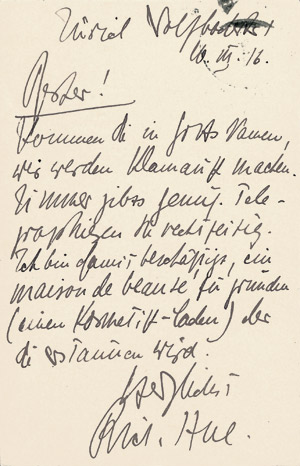 Zürich Wolfbach
16. III. 16.
Bester!
Kommen Sie in Gotts Namen,
wir werden Klamauk machen.
Zimmer gibts genug. Tele-
graphieren Sie rechtzeitig.
Ich bin damit beschäftigt, ein
maison de beauté zu gründen
(einen Kosmetik-Laden) der
Sie erstaunen wird.
Herzlichst
Rich. Hue.